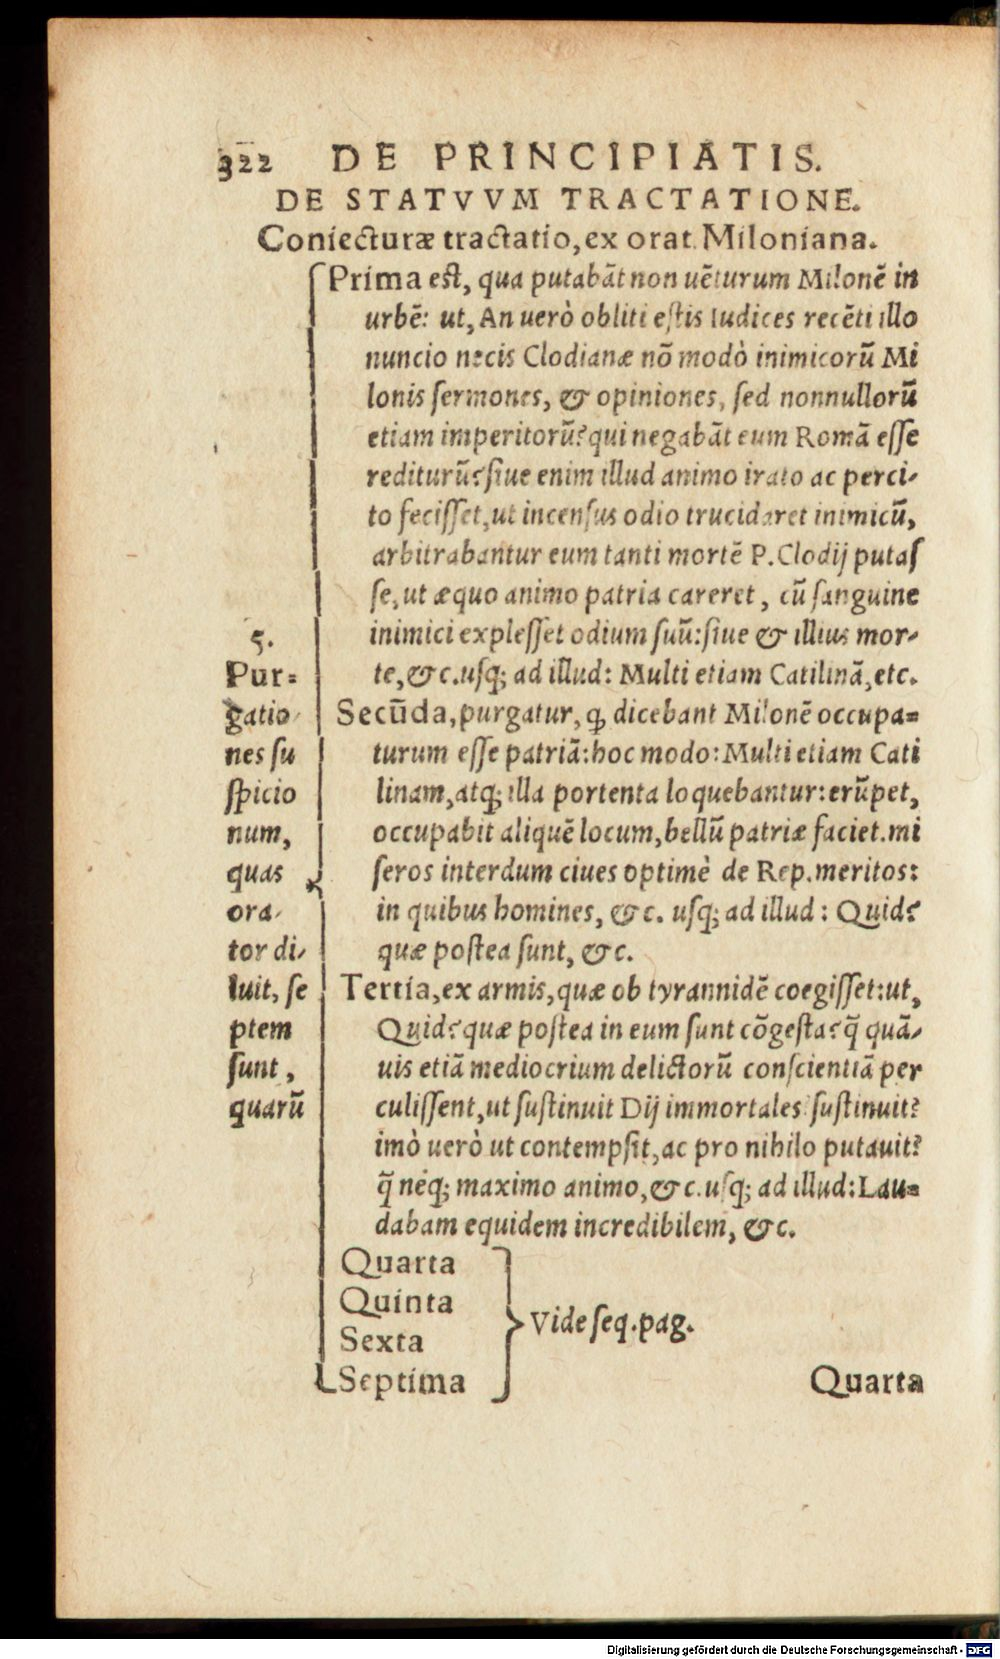 322 DE PRINCIPIATIS.
DE STATVVM TRACTATIONE.
Coniecturæ tractatio, ex orat. Miloniana.
5.
Pur-
gatio
nes su
spicio
num,
quas
ora-
tor di-
luit, se
ptem
sunt,
quarū
Prima est, qua putabāt non uēturum Milonē in
urbē: ut, An uerò obliti estis Iudices recēti illo
nuncio necis Clodianæ nō modò inimicorū Mi
lonis sermones, & opiniones, sed nonnullorū
etiam imperitorū? qui negabāt eum Romā esse
rediturū? siue enim illud animo irato ac perci-
to fecisset, ut incensus odio trucidaret inimicū,
arbitrabantur eum tanti mortē P. Clodij putas
se, ut æquo animo patria careret, cū sanguine
inimici explesset odium suū: siue & illius mor-
te, &c. usq; ad illud: Multi etiam Catilinā, etc.
Secūda, purgatur, ꝙ dicebant Milonē occupa-
turum esse patriā: hoc modo: Multi etiam Cati
linam, atq; illa portenta loquebantur: erūpet,
occupabit aliquē locum, bellū patriæ faciet. mi
seros interdum ciues optimè de Rep. meritos:
in quibus homines, &c. usq; ad illud: Quid?
quæ postea sunt, &c.
Tertia, ex armis, quæ ob tyrannidē coegisset: ut,
Quid? quæ postea in eum sunt cōgesta? q̃ quā-
uis etiā mediocrium delictorū conscientiā per
culissent, ut sustinuit Dij immortales? sustinuit?
imò uerò ut contempsit, ac pro nihilo putauit?
q̃ neq; maximo animo, &c. usq; ad illud: Lau-
dabam equidem incredibilem, &c.
Quarta
Quinta
Sexta
Septima
Vide seq. pag.
Quarta
Digitalisierung gefördert durch die Deutsche Forschungsgemeinschaft - DFG